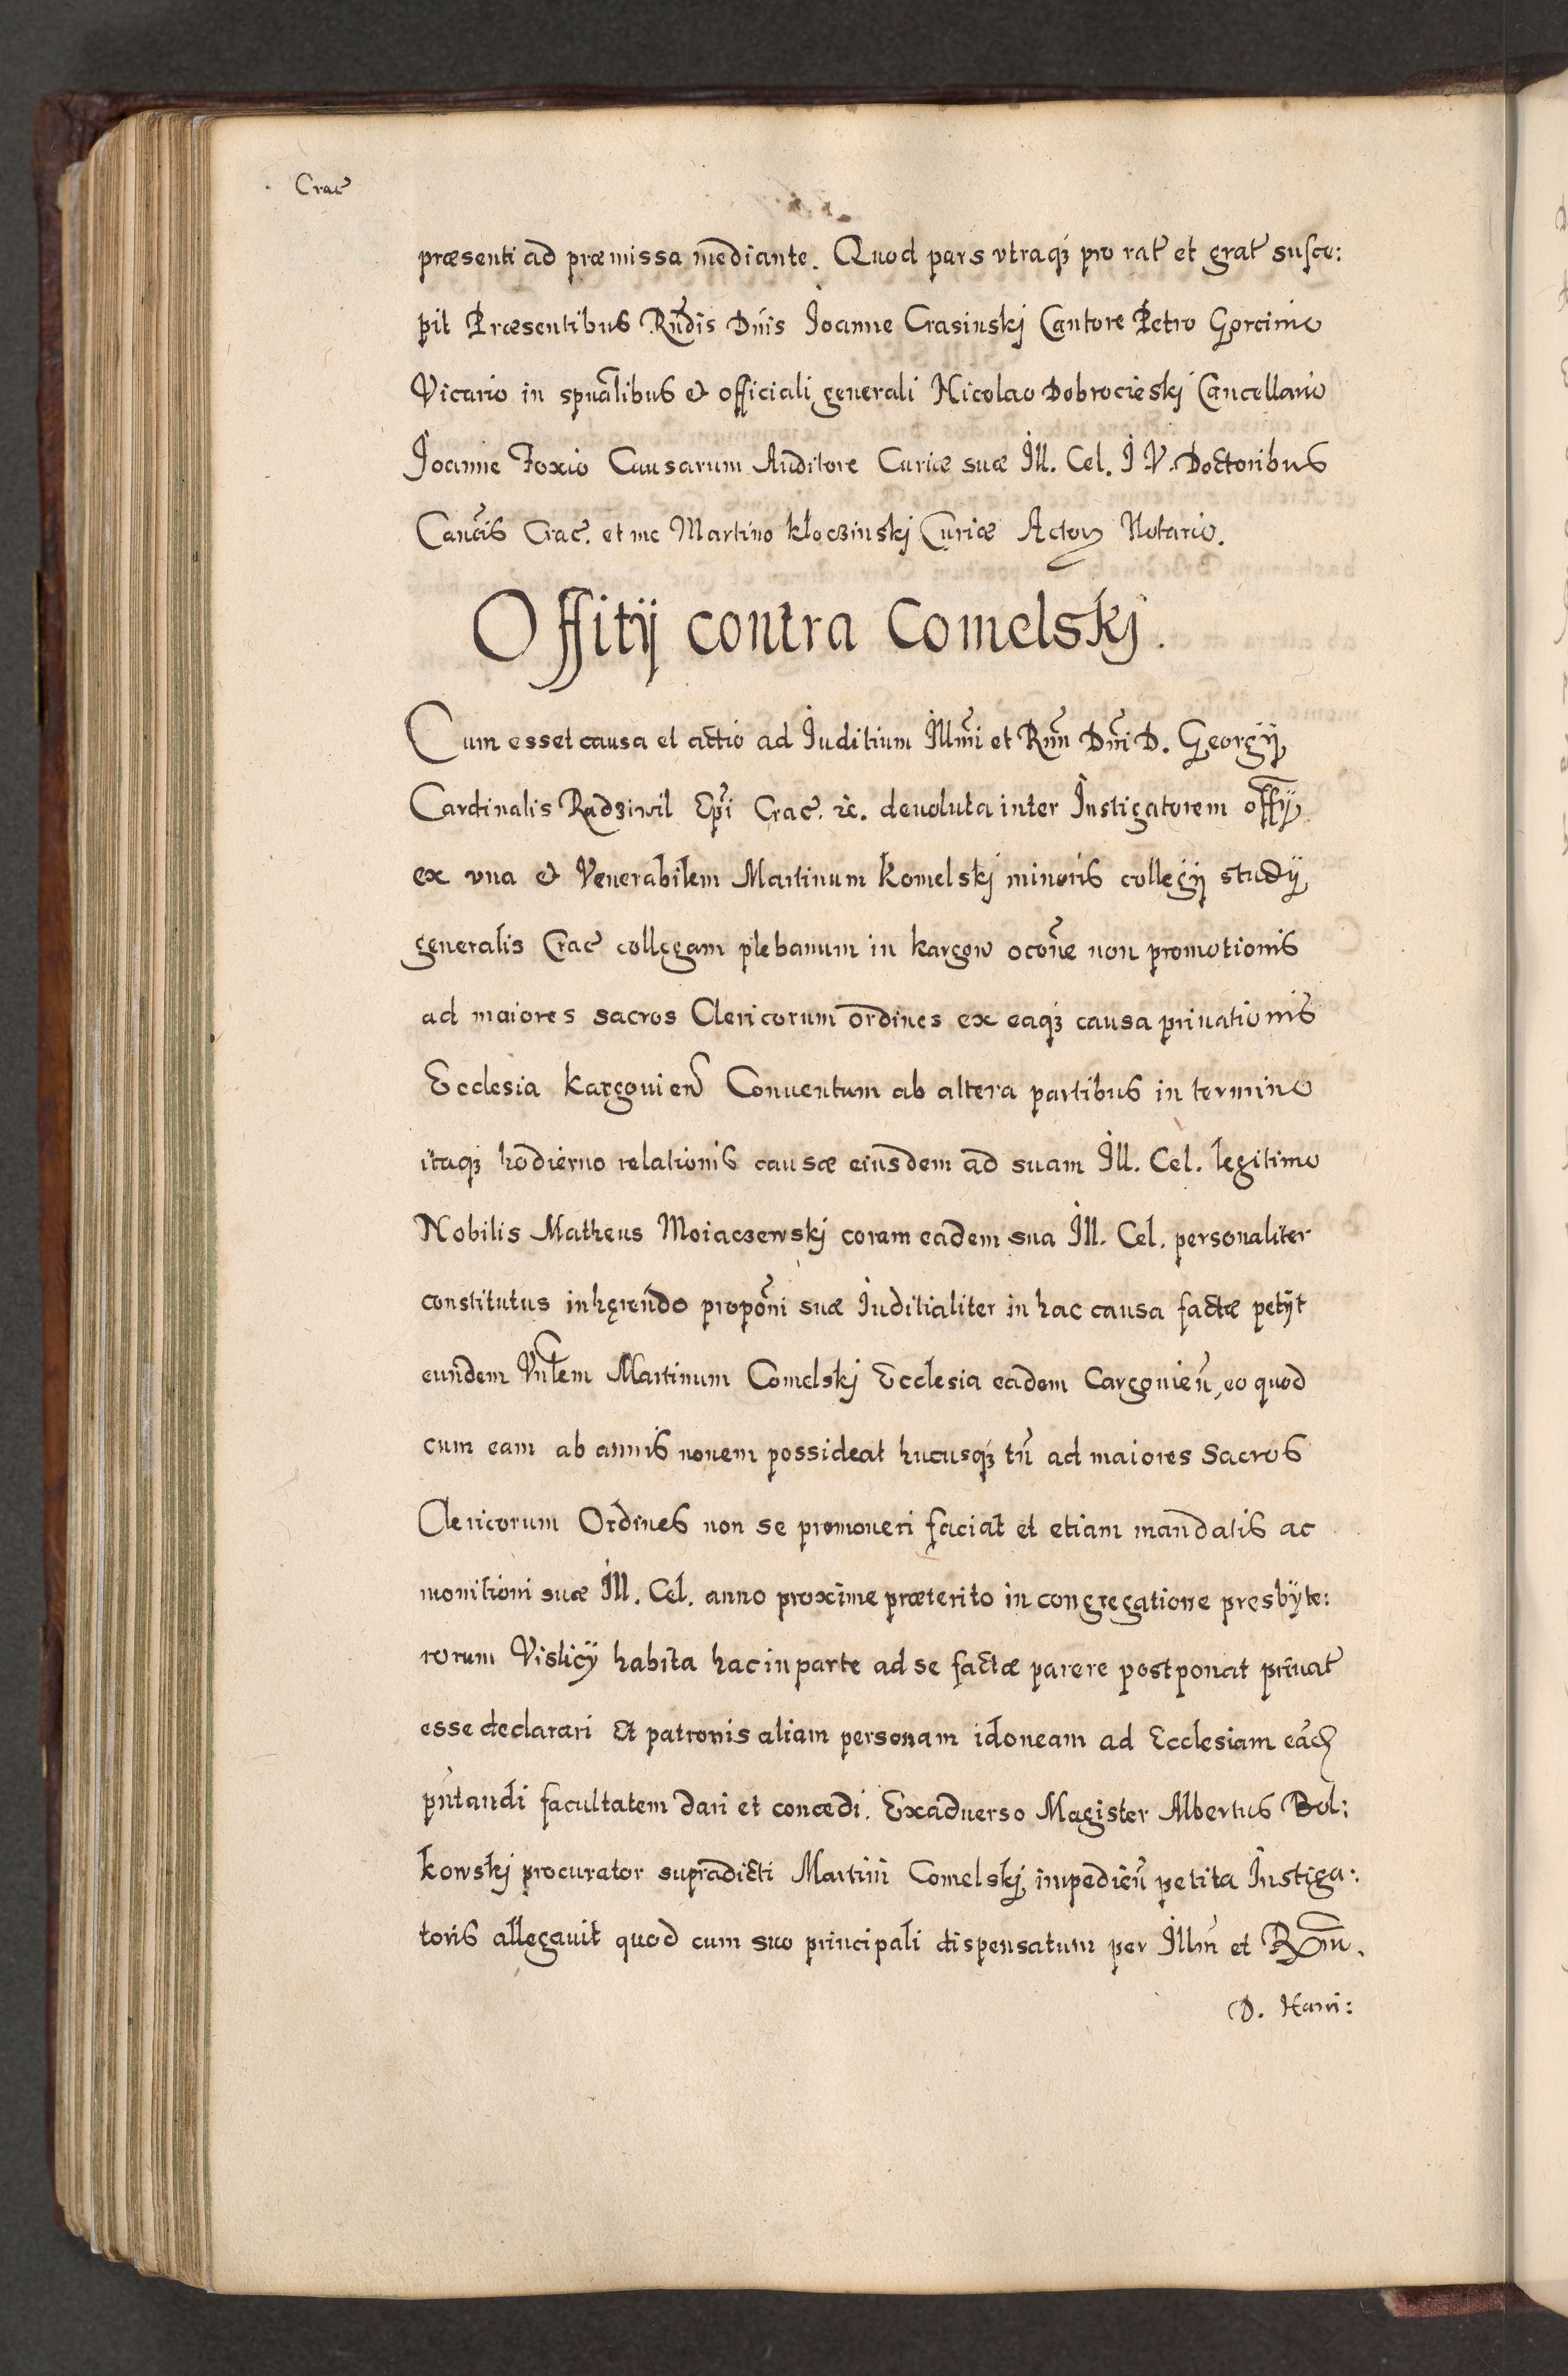 Crac̃
præsenti ad præmissa mediante. Quod pars vtraqȝ pro rat̃ et grat̃ susce:
pit Præsentibus Rñdis Dñis Joanne Crasinskj Cantore Petro Gorcinio
Vicario in spũalibus et officiali generali Nicolao Dobrocieskj Cancellario
Joanne Foxio Causarum Auditore Curiæ suæ Ill. Cel. J V. Doctoribus
Canc̃is Crac̃. et me Martino kłoczinskj Curiæ Actoꝝ Notario.
Offitij contra Comelskj.
Cum esset causa et actio ad Juditium Illm̃i et Rm̃n Dñi D. Georgij
Cardinalis Radziwil Ep̃i Crac̃. ꝛc. deuoluta inter Instigatorem offij
ex vna et Venerabilem Martinum Komelskj minoris collegij studij
generalis Crac̃ collegam plebanum in kargow occõne non promotionis
ad maiores sacros Clericorum ordines ex eaqȝ causa priuationis
Ecclesia Kargouieñ Conuentum ab altera partibus in termino
itaqȝ hodierno relationis causæ eiusdem ad suam Ill. Cel. legitimo
Nobilis Matheus Moiaczewskj coram eadem sua Ill. Cel. personaliter
constitutus inhęrendo propõni suæ Juditialiter in hac causa factæ petijt
eundem Vn̄lem Martinum Comelskj Ecclesia eadem Cargouieñ, eo quod
cum eam ab annis nouem possideat hucusqȝ tñ ad maiores Sacros
Clericorum Ordines non se promoueri faciat et etiam mandatis ac
monitioni suæ Ill. Cel. anno proxime præterito in congregatione presbÿte:
rorum Vislicÿ habita hac in parte ad se factæ parere postponat priuat̃
esse declarari Et patronis aliam personam idoneam ad Ecclesiam eãd
pñtandi facultatem dari et concedi. Exaduerso Magister Albertus Bol:
kowskj procurator supradicti Martini Comelskj impedieñ petita Instiga:
toris allegauit quod cum suo principali dispensatum per Illm̃ et Rm̃.
D. Hani: